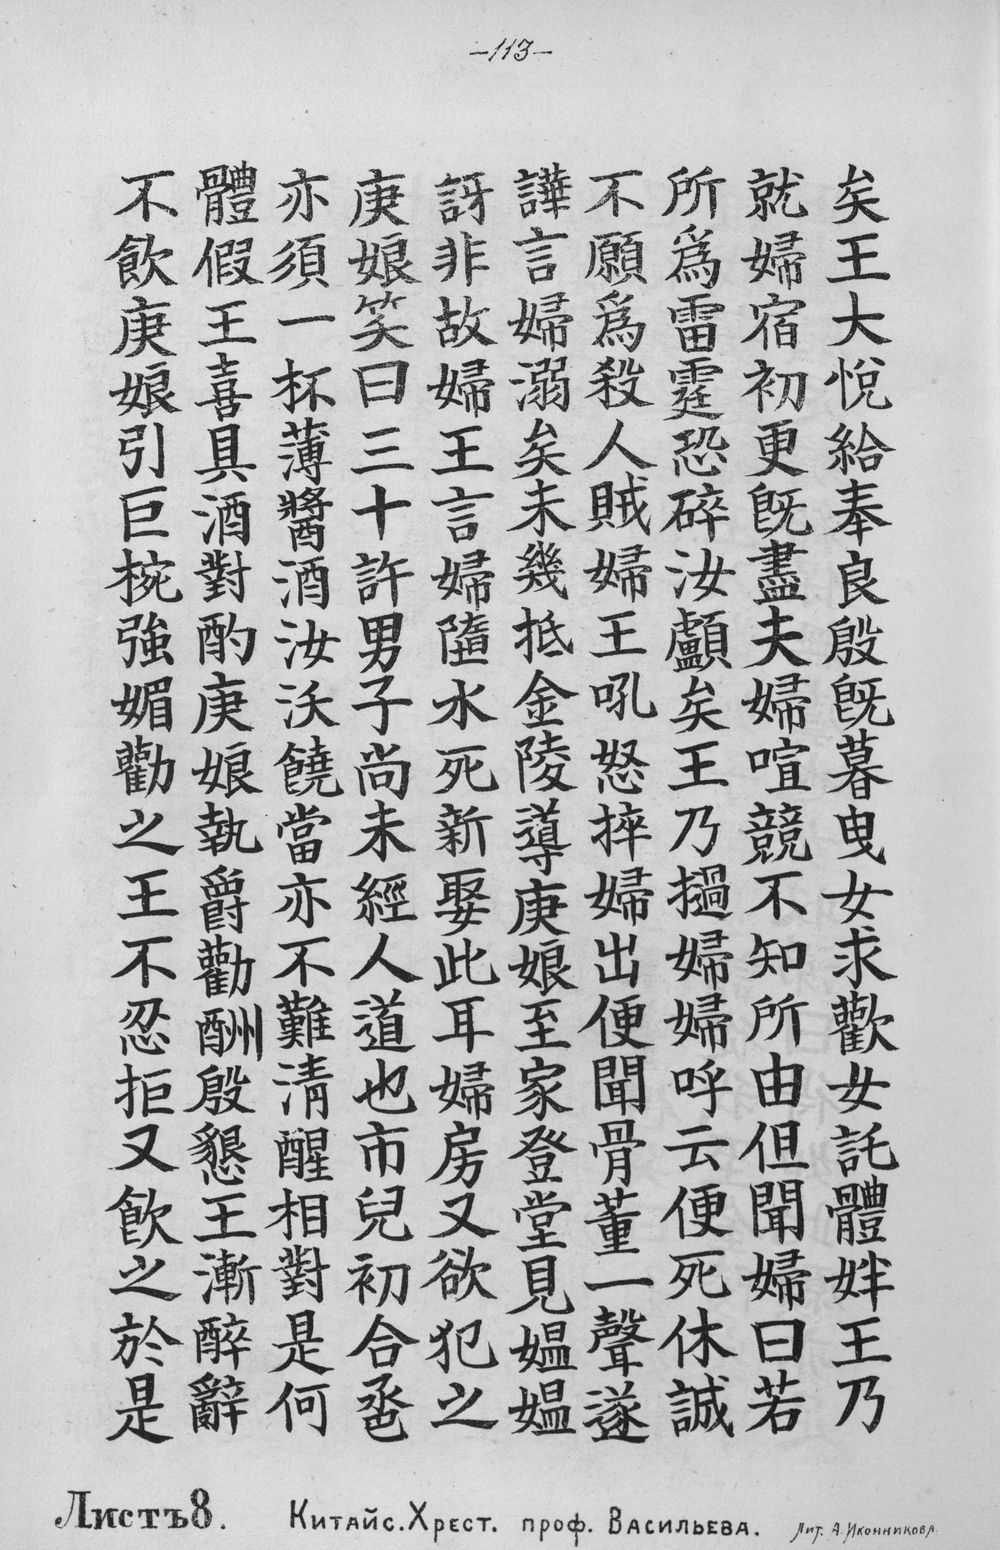 —113—
矣王大悅給奉良殷旣暮曳女求歡女託體姅王乃
就婦宿初更旣盡夫婦喧競不知所由但聞婦曰若
所爲雷霆恐碎汝顱矣王乃撾婦婦呼云便死休誠
不願爲殺人賊婦王吼怒捽婦出便聞骨董一聲遂
譁言婦溺矣未幾抵金陵導庚娘至家登堂見媼媼
訝非故婦王言婦墮水死新娶此耳婦房又欲犯之
庚娘笑曰三十許男子尚未經人道也市兒初合巹
亦須一杯薄醬酒汝沃饒當亦不難淸醒相對是何
體假王喜具酒對酌庚娘執爵勸酬殷懇王漸醉辭
不飮庚娘引巨椀強媚勸之王不忍拒又飮之於是
Листъ 8.
Китайс. Хрест. проф. Васильева.
Лит. А. Иконникова.